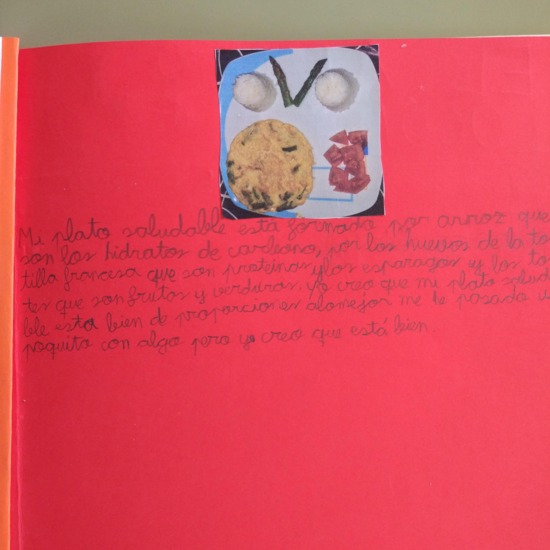 Mi plato saludable está formado por arroz que
son los hidratos de carbono, por los huevos de la to
tilla francesa que son proteinas y los esparagos y los to
tes que son frutas y verduras. yo creo que mi plato salud
ble esta bien de proporciones alomejor me he pasado u
poquito con algo pero yo creo que está bien.